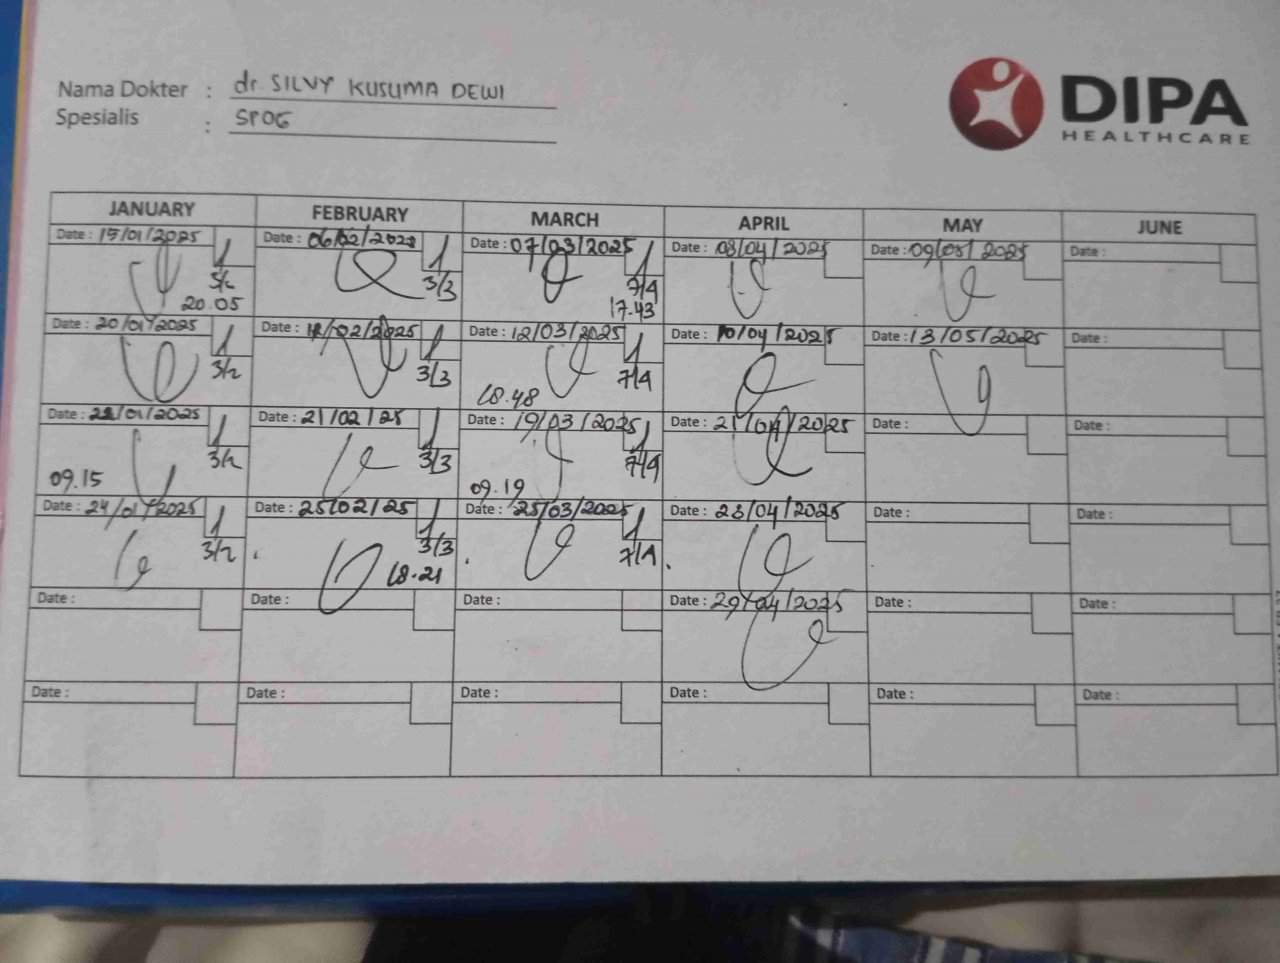 Nama Dokter : dr. SILVY KUSUMA DEWI
Spesialis : SPOG
DIPA
HEALTHCARE
JANUARY FEBRUARY MARCH APRIL MAY JUNE
Date : 15/01/2025 Date : 06/02/2025 Date : 07/03/2025 Date : 08/04/2025 Date : 09/05/2025 Date :
3/3 7/4
20.05 17.43
Date : 20/01/2025 Date : /02/2025 Date : 12/03/2025 Date : 10/04/2025 Date : 13/05/2025 Date :
3/2 3/3 7/4
18.48
Date : 22/01/2025 Date : 21/02/25 Date : 19/03/2025 Date : 21/04/2025 Date : Date :
3/2 3/3 7/4
09.15 09.19
Date : 24/01/2025 Date : 25/02/25 Date : 25/03/2025 Date : 23/04/2025 Date : Date :
3/2 3/3 7/4
18.21
Date : Date : Date : Date : 29/04/2025 Date : Date :
Date : Date : Date : Date : Date : Date :